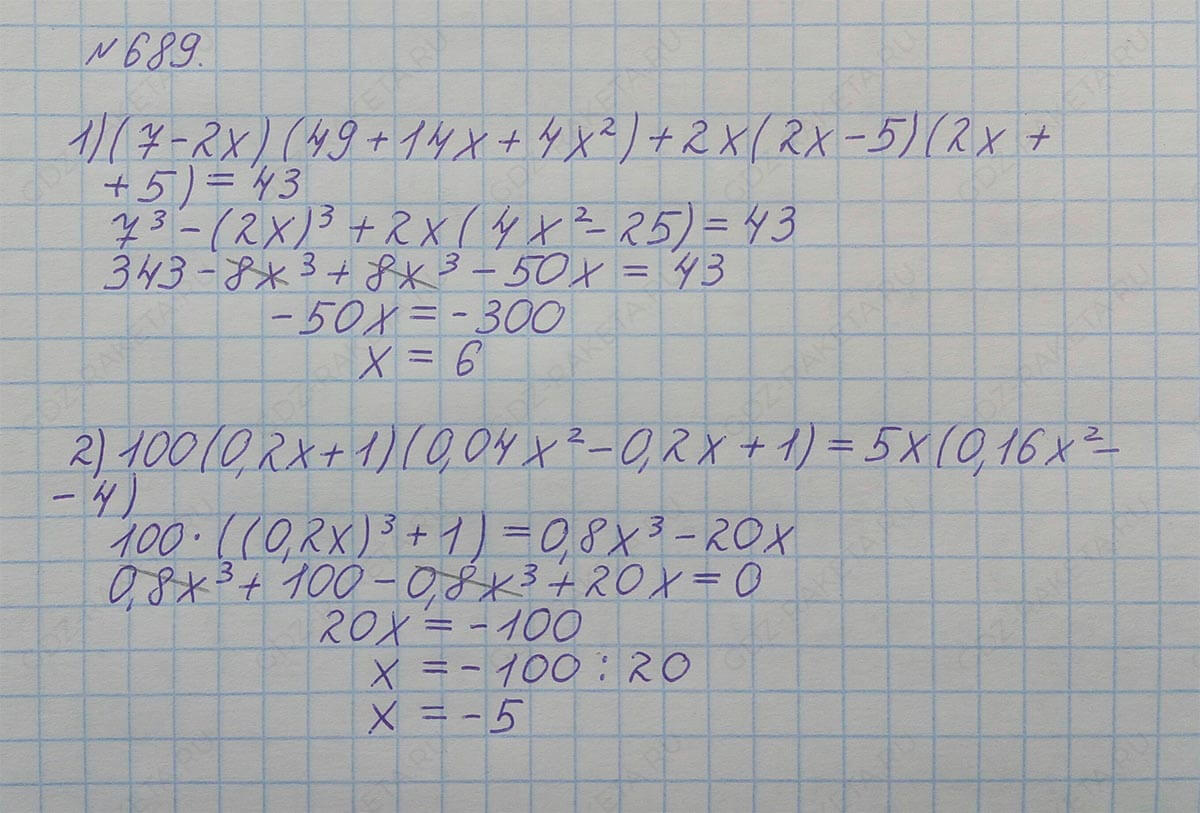 №689.
1) (7-2x)(49+14x+4x²)+2x(2x-5)(2x+
+5)=43
7³-(2x)³+2x(4x²-25)=43
343-8x³+8x³-50x=43
-50x=-300
x=6
2) 100(0,2x+1)(0,04x²-0,2x+1)=5x(0,16x²-
-4)
100·((0,2x)³+1)=0,8x³-20x
0,8x³+100-0,8x³+20x=0
20x=-100
x=-100:20
x=-5